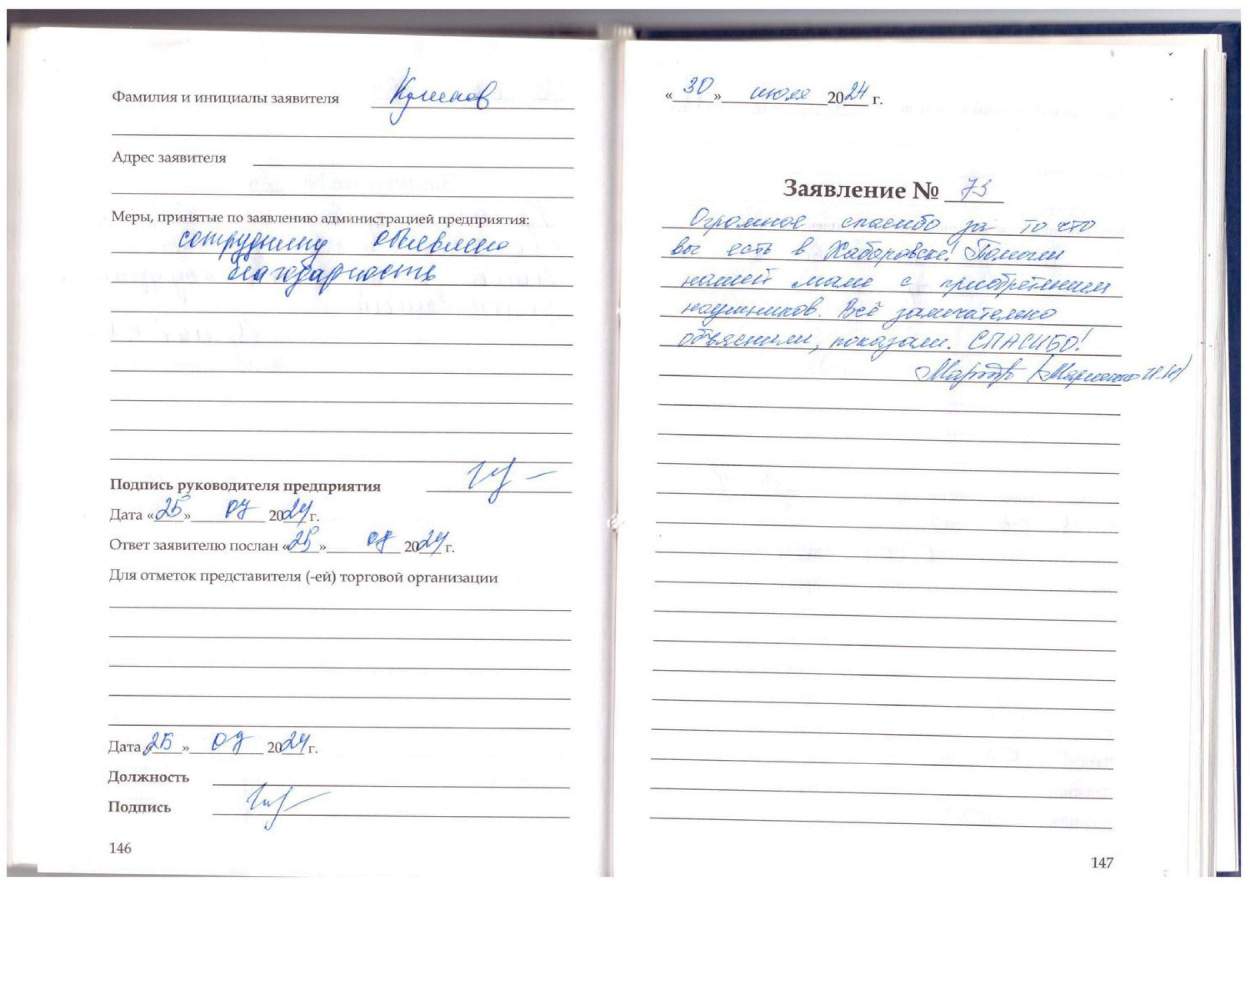 Фамилия и инициалы заявителя
Адрес заявителя
Меры, принятые по заявлению администрацией предприятия:
сотруднику объявлена
благодарность
Подпись руководителя предприятия
Дата «25» 07 2024 г.
Ответ заявителю послан «25» 07 2024 г.
Для отметок представителя (-ей) торговой организации
Дата «25» 07 2024 г.
Должность
Подпись
146
«30» июля 2024 г.
Заявление № 73
Огромное спасибо за то что
вы есть в Хабаровске! Помогли
нашей маме с приобретением
наушников. Всё замечательно
объяснили, показали. СПАСИБО!
147